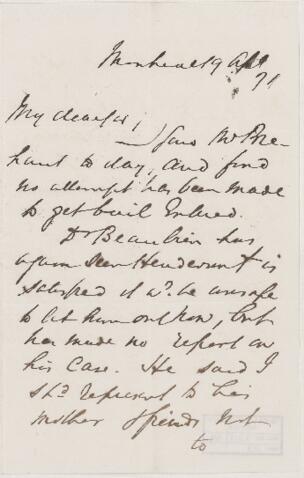 Montreal 9 Apl
/71
My dear Sir,
I saw Mr Bre-
haut to day, and find
no attempt has been made
to get bail Entered.
Dr Beaubien has
again seen Henderson & is
satisfied it wd. be unsafe
to let him out now, but
has made no report on
his case. He said I
shd represent to his
mother & friends not
to